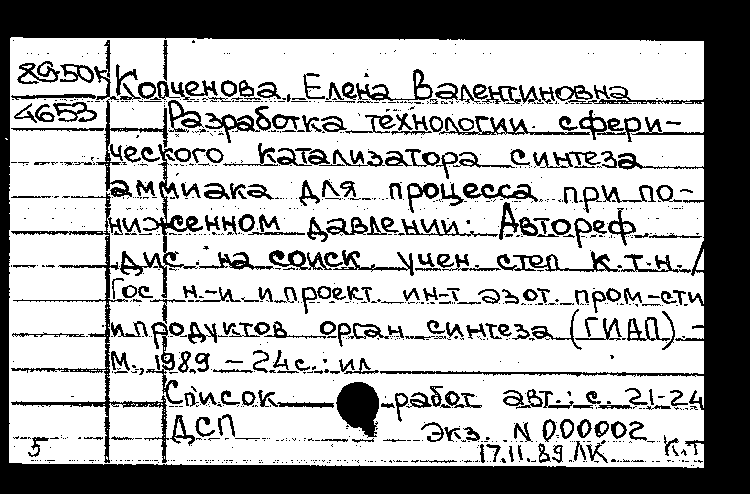 8950к Копченова, Елена Валентиновна
4653 Разработка технологии сфери-
ческого катализатора синтеза
аммиака для процесса при по-
ниженном давлении: Автореф.
дис. на соиск. учен. степ. к.т.н./
Гос. н.-и. и проект. ин-т азот. пром-сти
и продуктов орган синтеза (ГИАП). -
М., 1989 - 24с.: ил
Список работ авт.: с. 21-24
ДСП Экз. N 000002
5 17.11.89 ЛК. К.Т